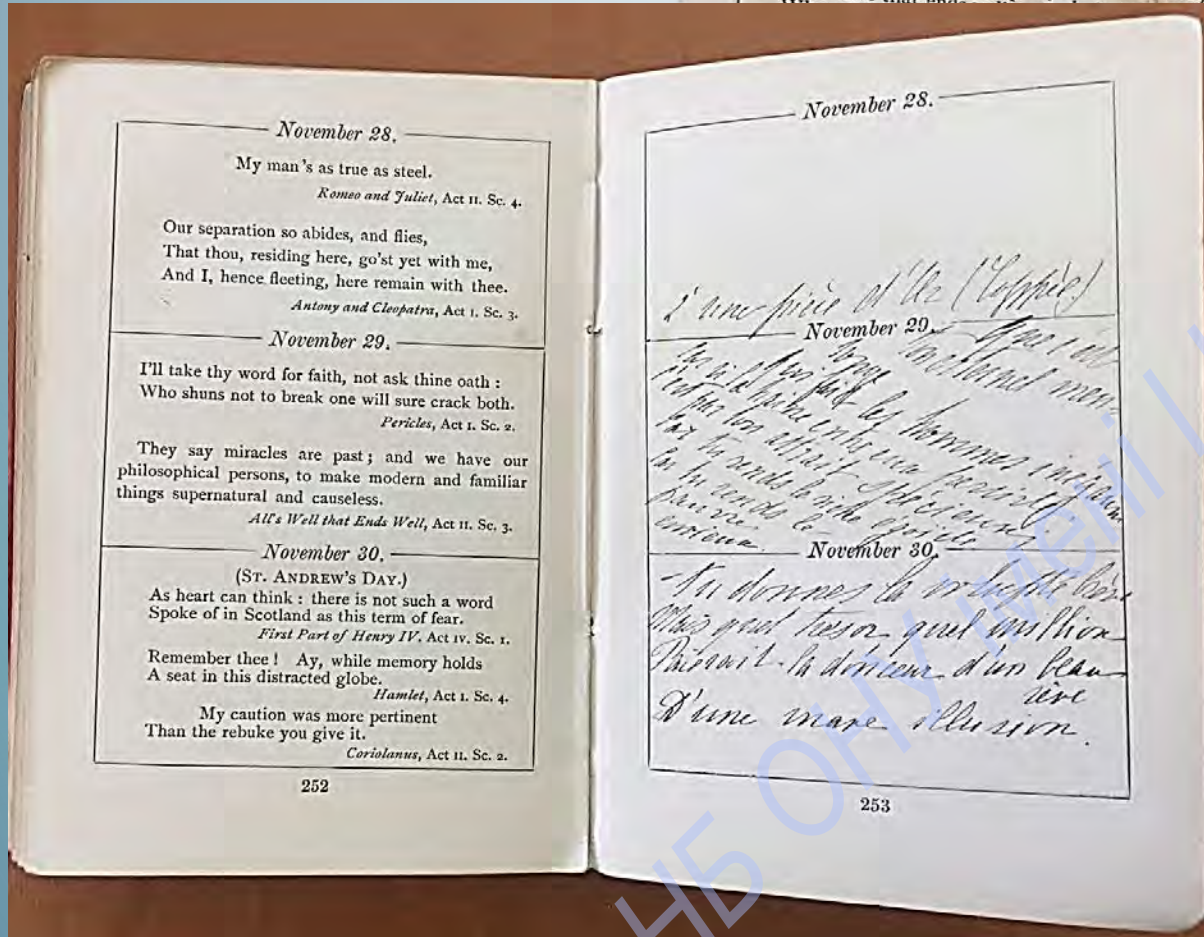 November 28.
My man's as true as steel.
Romeo and Juliet, Act II. Sc. 4.
Our separation so abides, and flies,
That thou, residing here, go'st yet with me,
And I, hence fleeting, here remain with thee.
Antony and Cleopatra, Act I. Sc. 3.
November 29.
I'll take thy word for faith, not ask thine oath :
Who shuns not to break one will sure crack both.
Pericles, Act I. Sc. 2.
They say miracles are past ; and we have our
philosophical persons, to make modern and familiar
things supernatural and causeless.
All's Well that Ends Well, Act II. Sc. 3.
November 30.
(ST. ANDREW'S DAY.)
As heart can think : there is not such a word
Spoke of in Scotland as this term of fear.
First Part of Henry IV. Act IV. Sc. 1.
Remember thee ! Ay, while memory holds
A seat in this distracted globe.
Hamlet, Act I. Sc. 4.
My caution was more pertinent
Than the rebuke you give it.
Coriolanus, Act II. Sc. 2.
252
November 28.
une pièce d'Or (Coppée)
November 29.
les hommes
ton attrait spécieux
tu rends le riche égoïste
tu rends le
pauvre
envieux.
November 30.
Tu donnes la
Mais quel trésor quel million
la douceur d'un beau
rêve
D'une illusion.
253
НБ ОНУ імені І